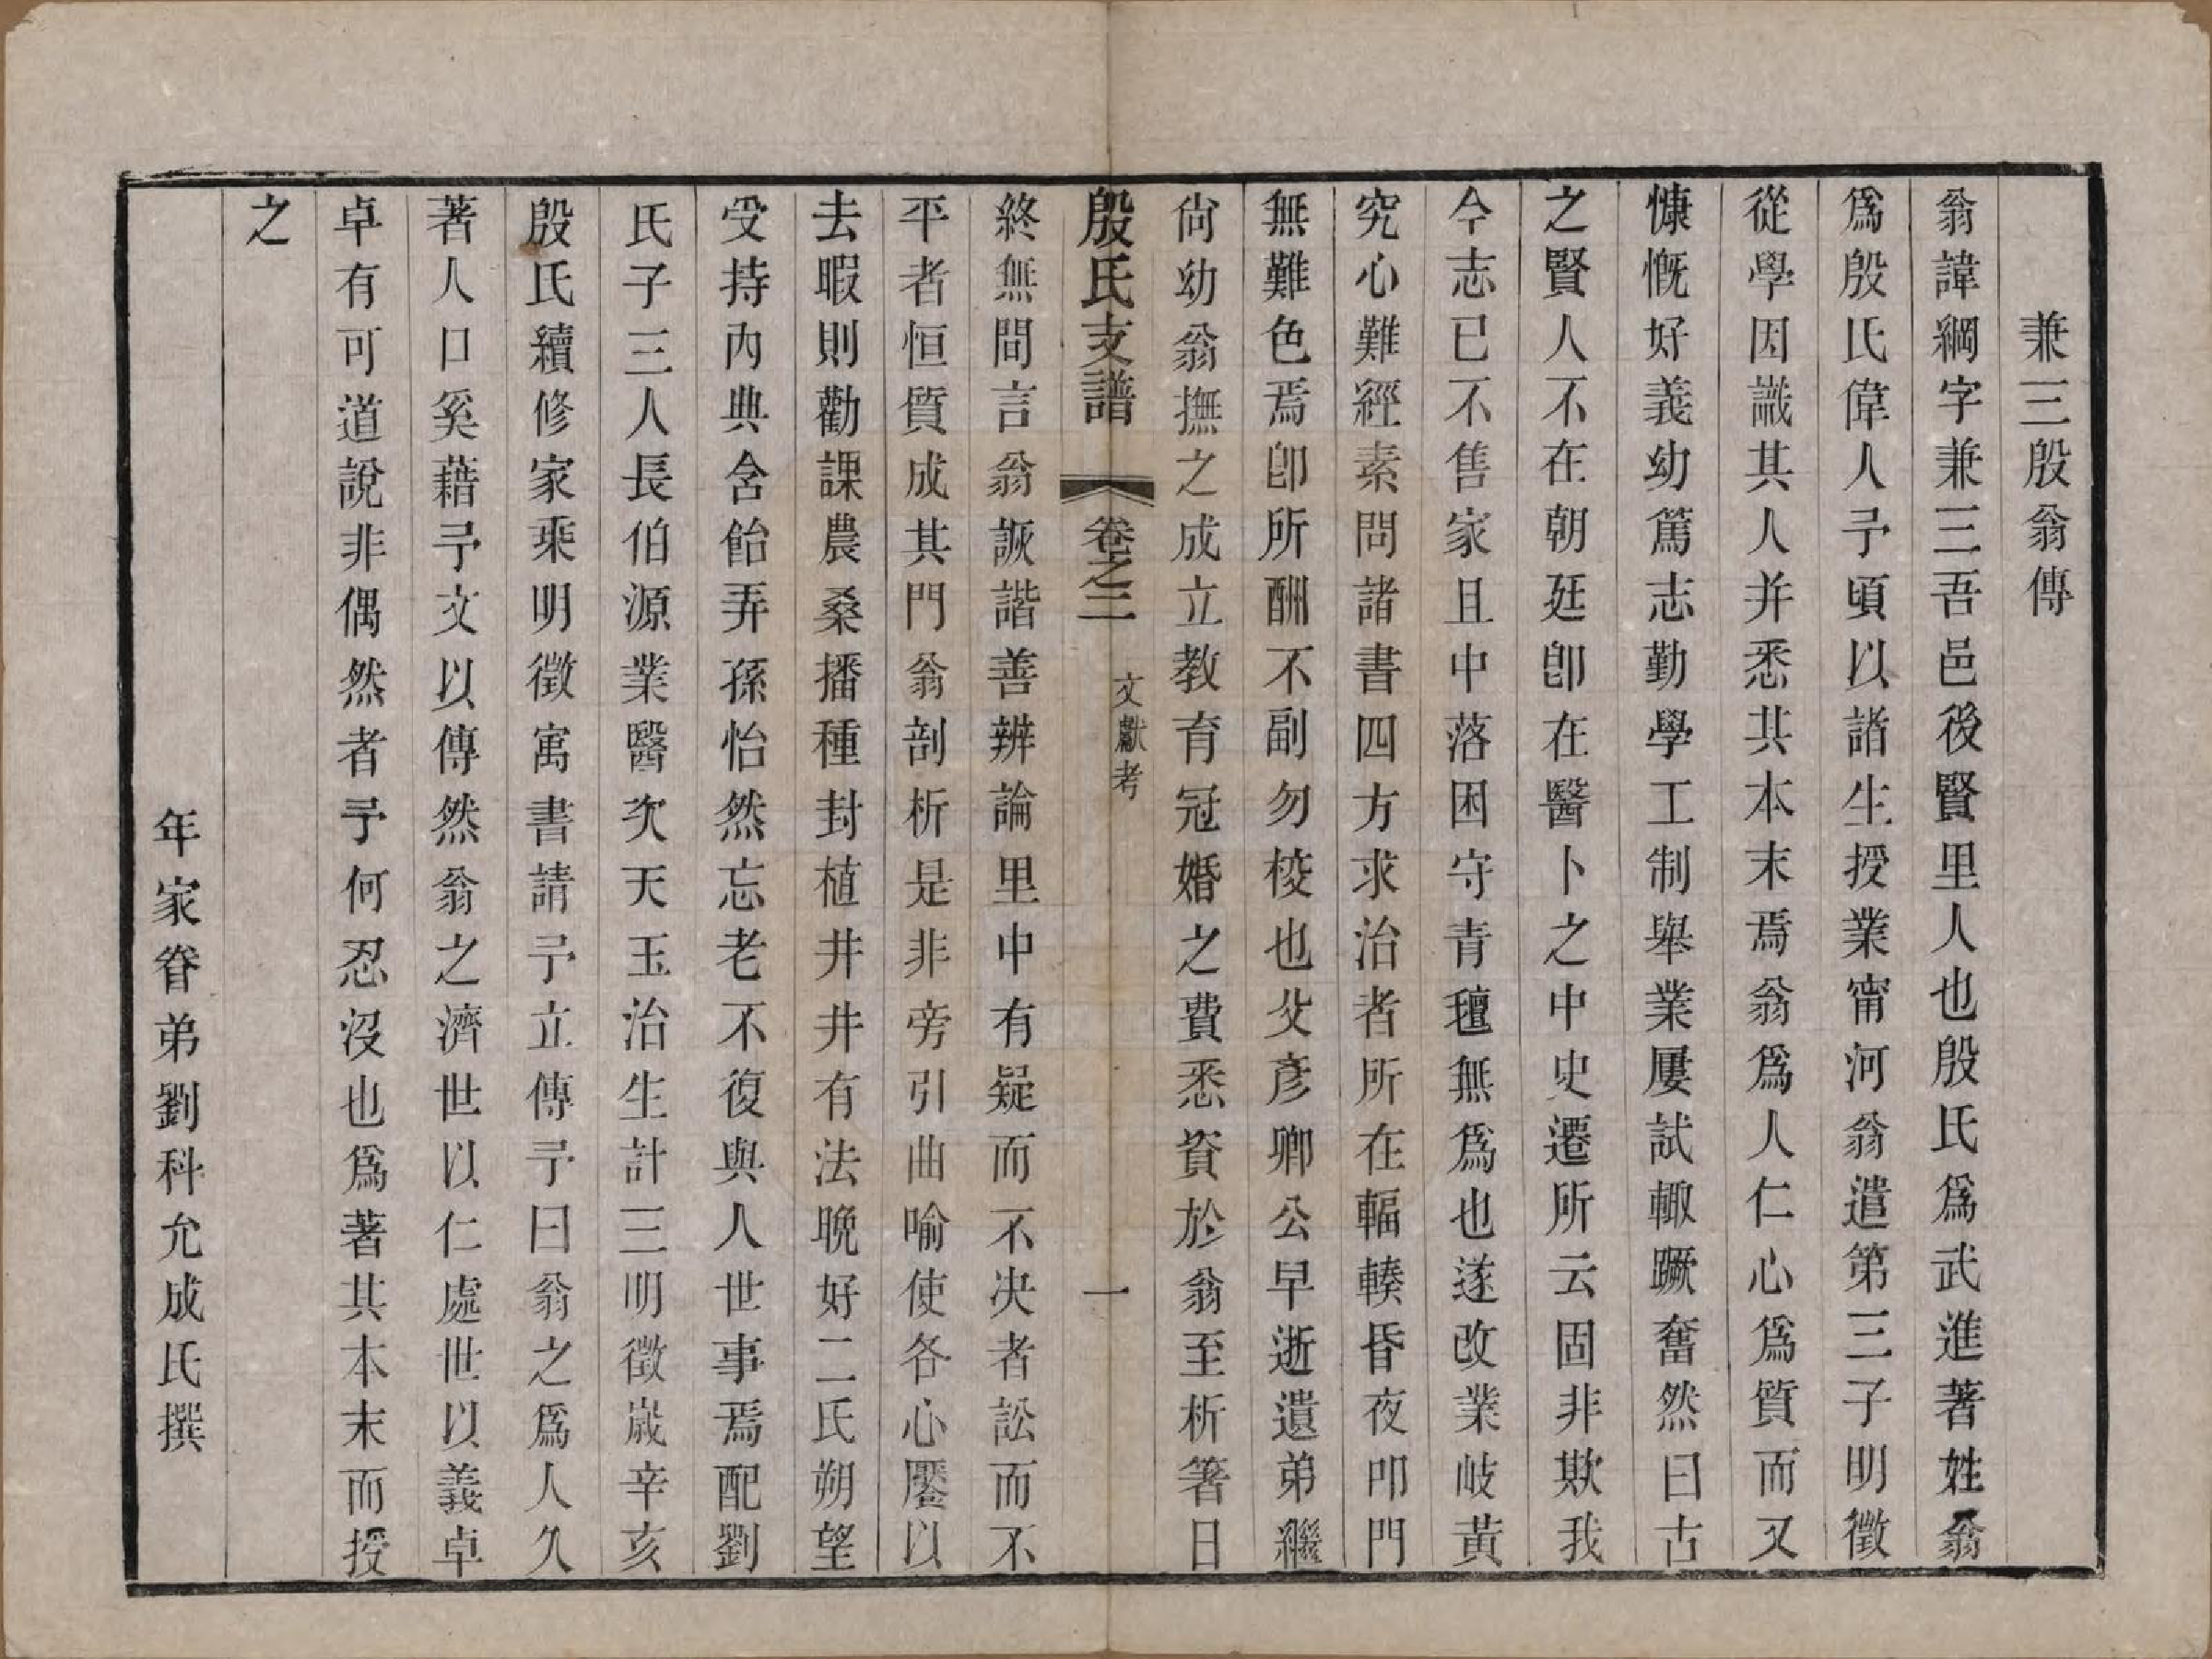 兼三殷翁傳
翁諱綱字兼三吾邑後賢里人也殷氏爲武進著姓翁
爲殷氏偉人予頃以諸生授業甯河翁遣第三子明徵
從學因識其人并悉其本末焉翁爲人仁心爲質而又
慷慨好義幼篤志勤學工制舉業屢試輙蹶奮然曰古
之賢人不在朝廷卽在醫卜之中史遷所云固非欺我
今志已不售家且中落困守青氊無爲也遂改業岐黃
究心難經素問諸書四方求治者所在輻輳昏夜叩門
無難色焉卽所酬不副勿校也父彥卿公早逝遺弟繼
尙幼翁撫之成立教育冠婚之費悉資於翁至析箸日
殷氏支譜 卷之二 文獻考 一
終無間言翁詼諧善辨論里中有疑而不决者訟而不
平者恒質成其門翁剖析是非旁引曲喻使各心饜以
去暇則勸課農桑播種封植井井有法晚好二氏朔望
受持內典含飴弄孫怡然忘老不復與人世事焉配劉
氏子三人長伯源業醫次天玉治生計三明徵歲辛亥
殷氏續修家乘明徵寓書請予立傳予曰翁之爲人久
著人口奚藉予文以傳然翁之濟世以仁處世以義卓
卓有可道說非偶然者予何忍沒也爲著其本末而授
之
年家眷弟劉科允成氏撰